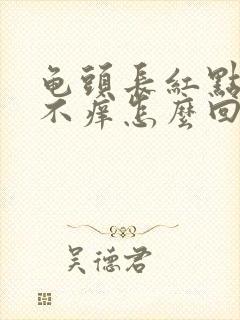 龟頭長紅點
不痒怎麼回
吴德君